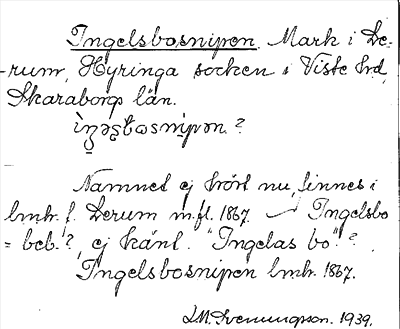 Ingelsbosnipen. Mark i De-
rum, Hyringa socken i Viste hrd,
Skaraborgs län.
ìŋəʂbωsnìpən.?
Namnet ej hört nu, finnes i
lmhr. f. Derum m.fl. 1867. Ingelsbo
= beb.?, ej känt. "Ingelas bo"?
Ingelsbosnipen lmhr. 1867.
1939.